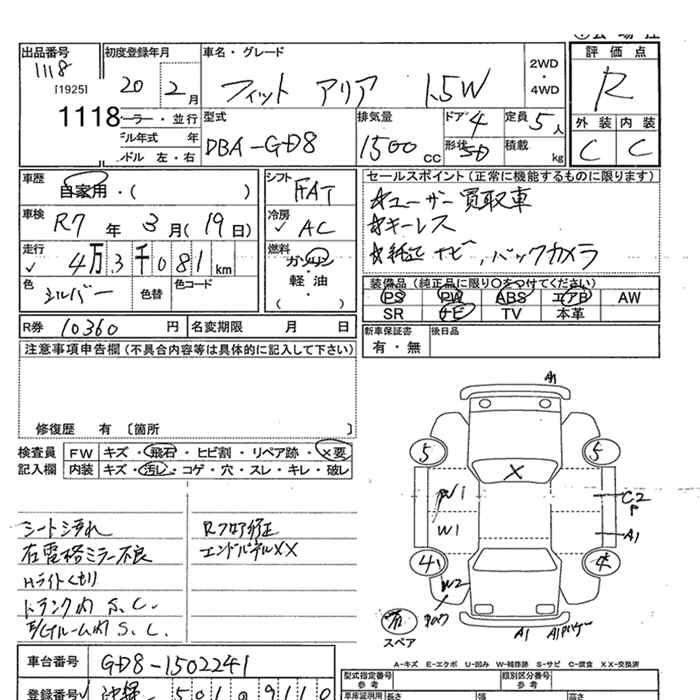 出品番号 1118 [1925] 1118
初度登録年月 20 2月
ーラー・並行
デル年式 年
ンドル 左・右
車名・グレード フィット アリア 1.5W
2WD・4WD
評価点 R
外装 内装
C C
型式 DBA-GD8
排気量 1500 CC
ドア 4
形状 5D
定員 5人
積載 kg
車歴 自家用・( )
車検 R7年 3月(19日)
走行 4万3千081km
色 シルバー 色替 色コード
シフト FAT
冷房 AC
燃料 ガソリン 軽油 ( )
セールスポイント(正常に機能するものに限ります)
☆ユーザー買取車
☆キーレス
☆純正ナビ,バックカメラ
装備品(純正品に限り○をつけてください)
PS PW ABS エアB AW
SR ナビ TV 本革
R券 10360円 名変期限 月 日
新車保証書 有・無 後日品
注意事項申告欄(不具合内容等は具体的に記入して下さい)
修復歴 有〔箇所 〕
検査員記入欄
FW キズ・飛石・ヒビ割・リペア跡・×要
内装 キズ・汚レ・コゲ・穴・スレ・キレ・破レ
シート汚れ
右電格ミラー不良
Hライトくもり
トランク内 S.C.
E/Gルーム内 S.C.
Rフロア修正
エンドパネルXX
A1
5 5
X
W1
W1
C2
P
A1
4 4
W2
有
スペア
A1
A-キズ E-エクボ U-凹み W-補修跡 S-サビ C-腐食 XX-交換済
車台番号 GD8-1502241
登録番号 501 9110
型式指定番号 参考
類別区分番号 参考
車庫証明用 長さ 幅 高さ